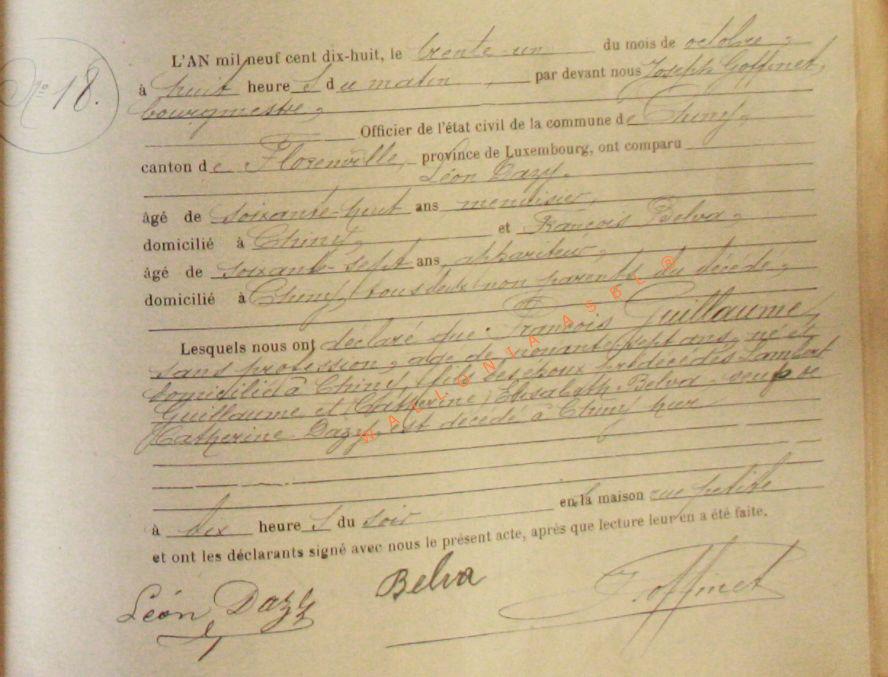 N° 18.
L'AN mil neuf cent dix-huit, le trente-un du mois de octobre,
à huit heures du matin, par devant nous Joseph Goffinet,
bourgmestre,
Officier de l'état civil de la commune de Chiny,
canton de Florenville, province de Luxembourg, ont comparu
Léon Dazy,
âgé de soixante-huit ans menuisier,
domicilié à Chiny, et François Belva,
âgé de soixante-sept ans, appariteur,
domicilié à Chiny, tous deux non parents du décédé,
Lesquels nous ont déclaré que François Guillaume,
sans profession, âgé de nonante-sept ans, né et
domicilié à Chiny, fils des époux prédécédés Lambert
Guillaume et Catherine Elisabeth Belva, veuf de
Catherine Dazy, est décédé à Chiny hier
à dix heures du soir en la maison rue petite
et ont les déclarants signé avec nous le présent acte, après que lecture leur en a été faite.
Léon Dazy Belva J. Goffinet
WALLONIA ASBL @